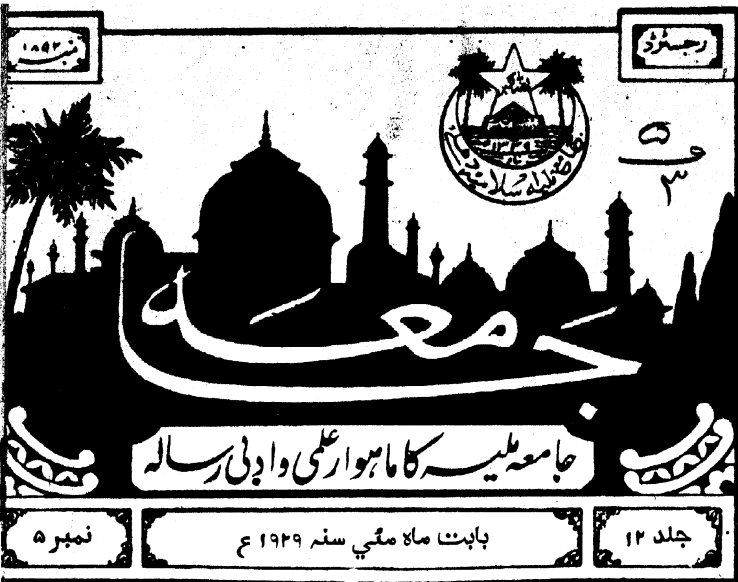 رجسٹرڈ
نمبر ۱۸۹۲
جامعہ ملیہ اسلامیہ دہلی
۱۳۳۹
۵
۳
جامعہ
جامعہ ملیہ کا ماہوار علمی و ادبی رسالہ
جلد ۱۲
بابت ماہ مئی سنہ ۱۹۲۹ ع
نمبر ۵